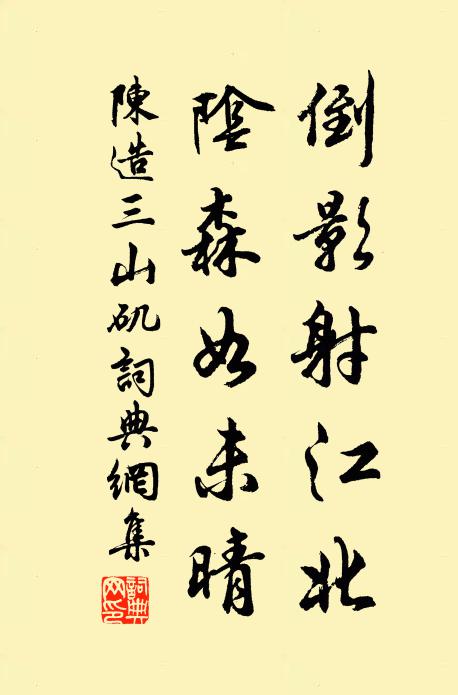 倒影射江北
陰森如未晴
陳造三山矶詞典網集
詞典網印